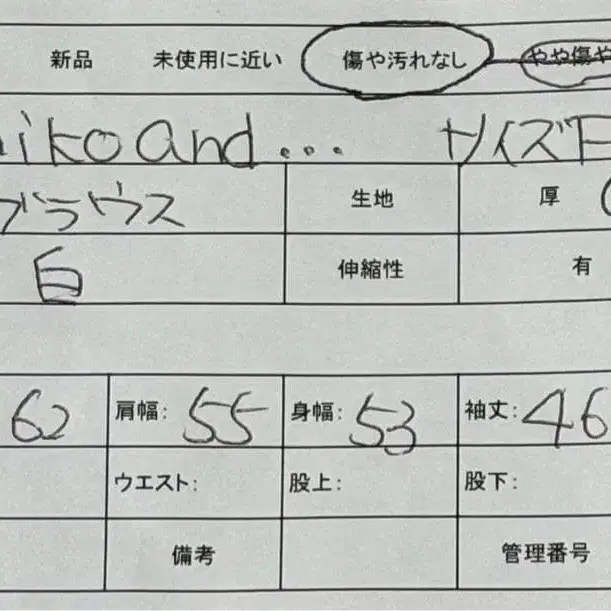 新品 未使用に近い 傷や汚れなし やや傷や
niko and... サイズF
ブラウス 生地 厚
白 伸縮性 有
62 肩幅: 55 身幅: 53 袖丈: 46
ウエスト: 股上: 股下:
備考 管理番号